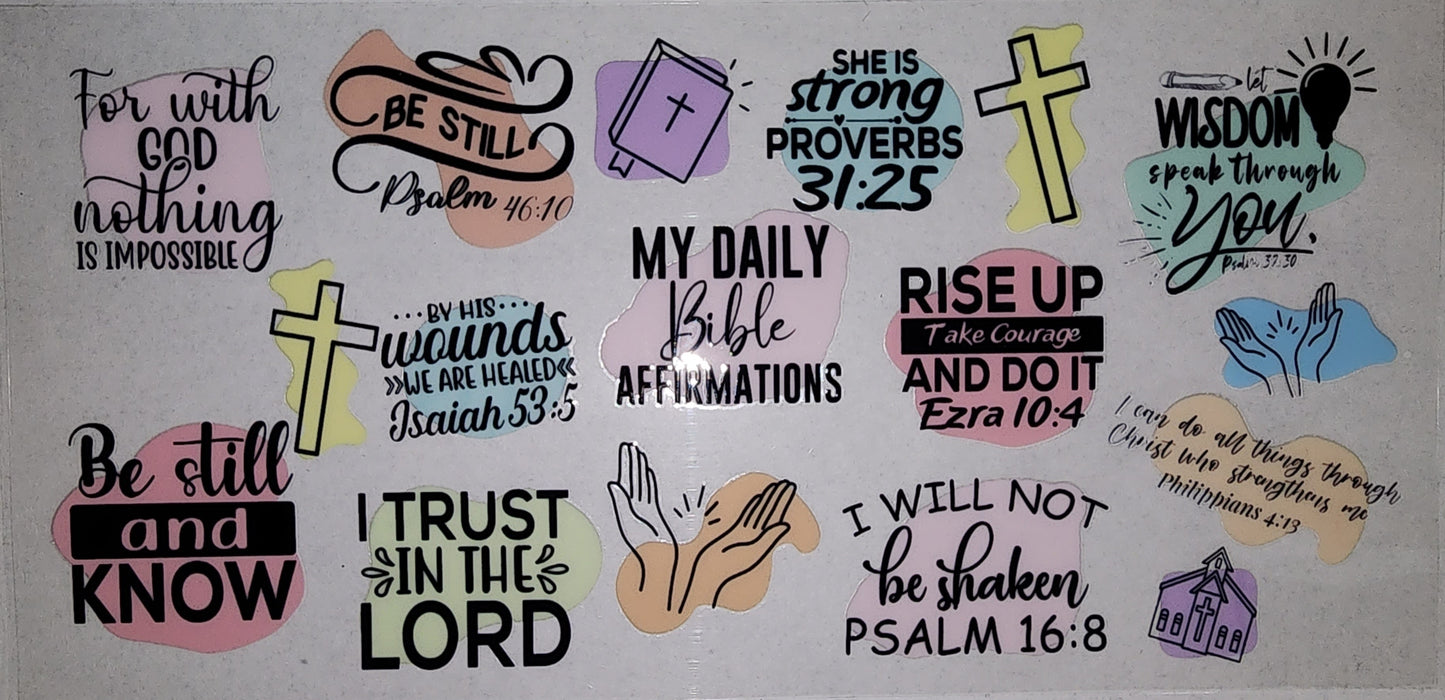 For with
GOD
nothing
IS IMPOSSIBLE
BE STILL
Psalm 46:10
SHE IS
strong
PROVERBS
31:25
let
WISDOM
speak through
You,
Psalm 37:30
...BY HIS...
wounds
»WE ARE HEALED«
Isaiah 53:5
MY DAILY
Bible
AFFIRMATIONS
RISE UP
Take Courage
AND DO IT
Ezra 10:4
I can do all things through
Christ who strengthens me
Philippians 4:13
Be still
and
KNOW
I TRUST
IN THE
LORD
I WILL NOT
be shaken
PSALM 16:8